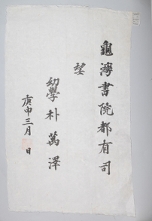 龜灣書院都有司
望
幼學朴萬澤
庚申三月 日